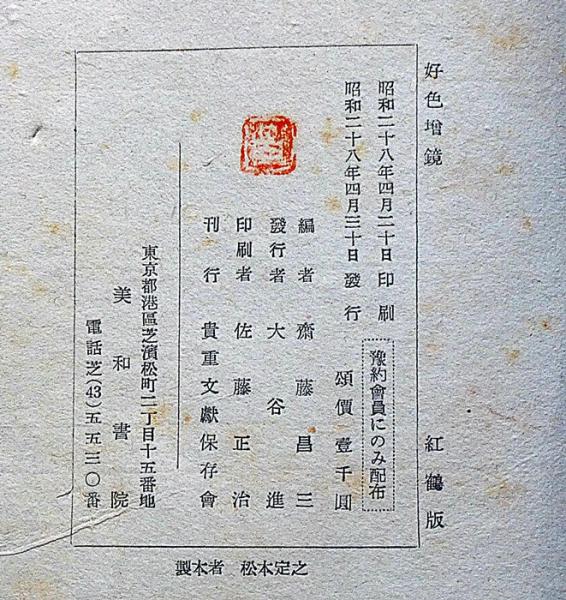 好色增鏡 紅鶴版
昭和二十八年四月二十日 印刷
昭和二十八年四月三十日 發行
豫約會員にのみ配布
頌價壹千圓
編者 齋藤昌三
發行者 大谷進
印刷者 佐藤正治
刊行 貴重文獻保存會
東京都港區芝濱松町二丁目十五番地
美和書院
電話芝(43)五五三〇番
製本者 松本定之